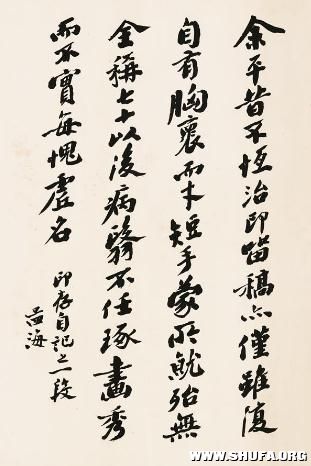 余平昔不恆治印留稿亦僅雖復
自有胸而才短手蒙所就殆無
全稱七十以後病翳不任琢畫秀
而不實每愧虛名
印存自記之一段
海
WWW.SHUFA.ORG